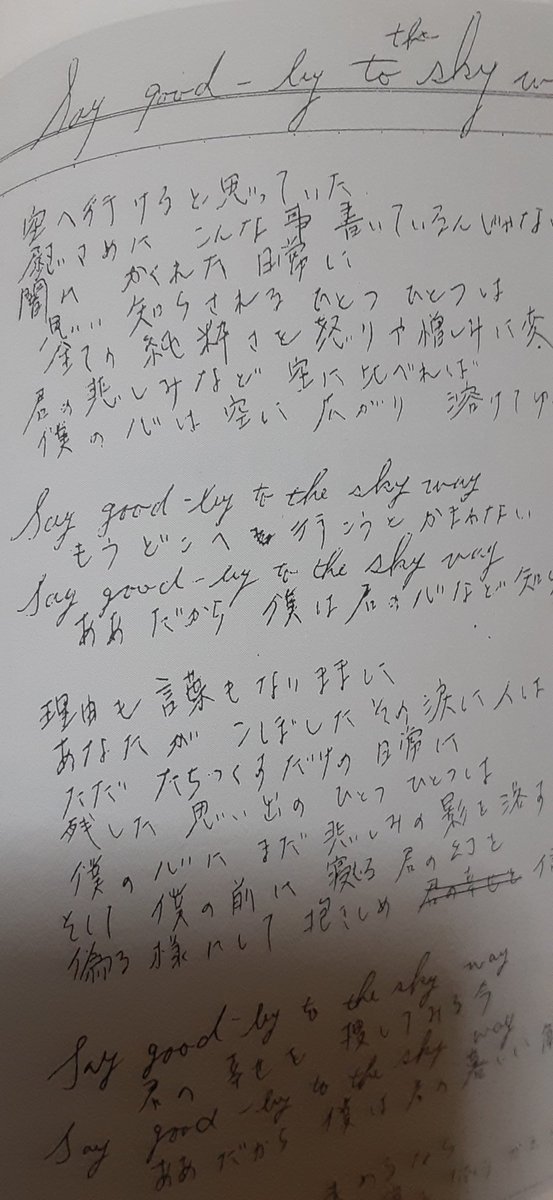 Say good-by to the sky w
空へ行けると思っていた
慰さめに こんな事 書いているんじゃない
闇に かくれた 日常に
思い 知らされる ひとつ ひとつは
全ての 純粋さを 怒りや憎しみに変
君の悲しみなど 空に比べれば
僕の心は空に 広がり 溶けてゆ
Say good-by to the sky way
もうどこへ 行こうと かまわない
Say good-by to the sky way
ああ だから 僕は君の心など知
理由も 言葉もないままに
あなたが こぼした その涙に人は
ただ たちつくすだけの 日常に
残した 思い出の ひとつひとつは
僕の心に まだ 悲しみの影を落す
そして 僕の前に 寝る 君の幻を
偽る様にして 抱きしめ
Say good-by to the sky way
君の 幸せを 捜してみる今
Say good-by to the sky way
ああ だから 僕は 君の